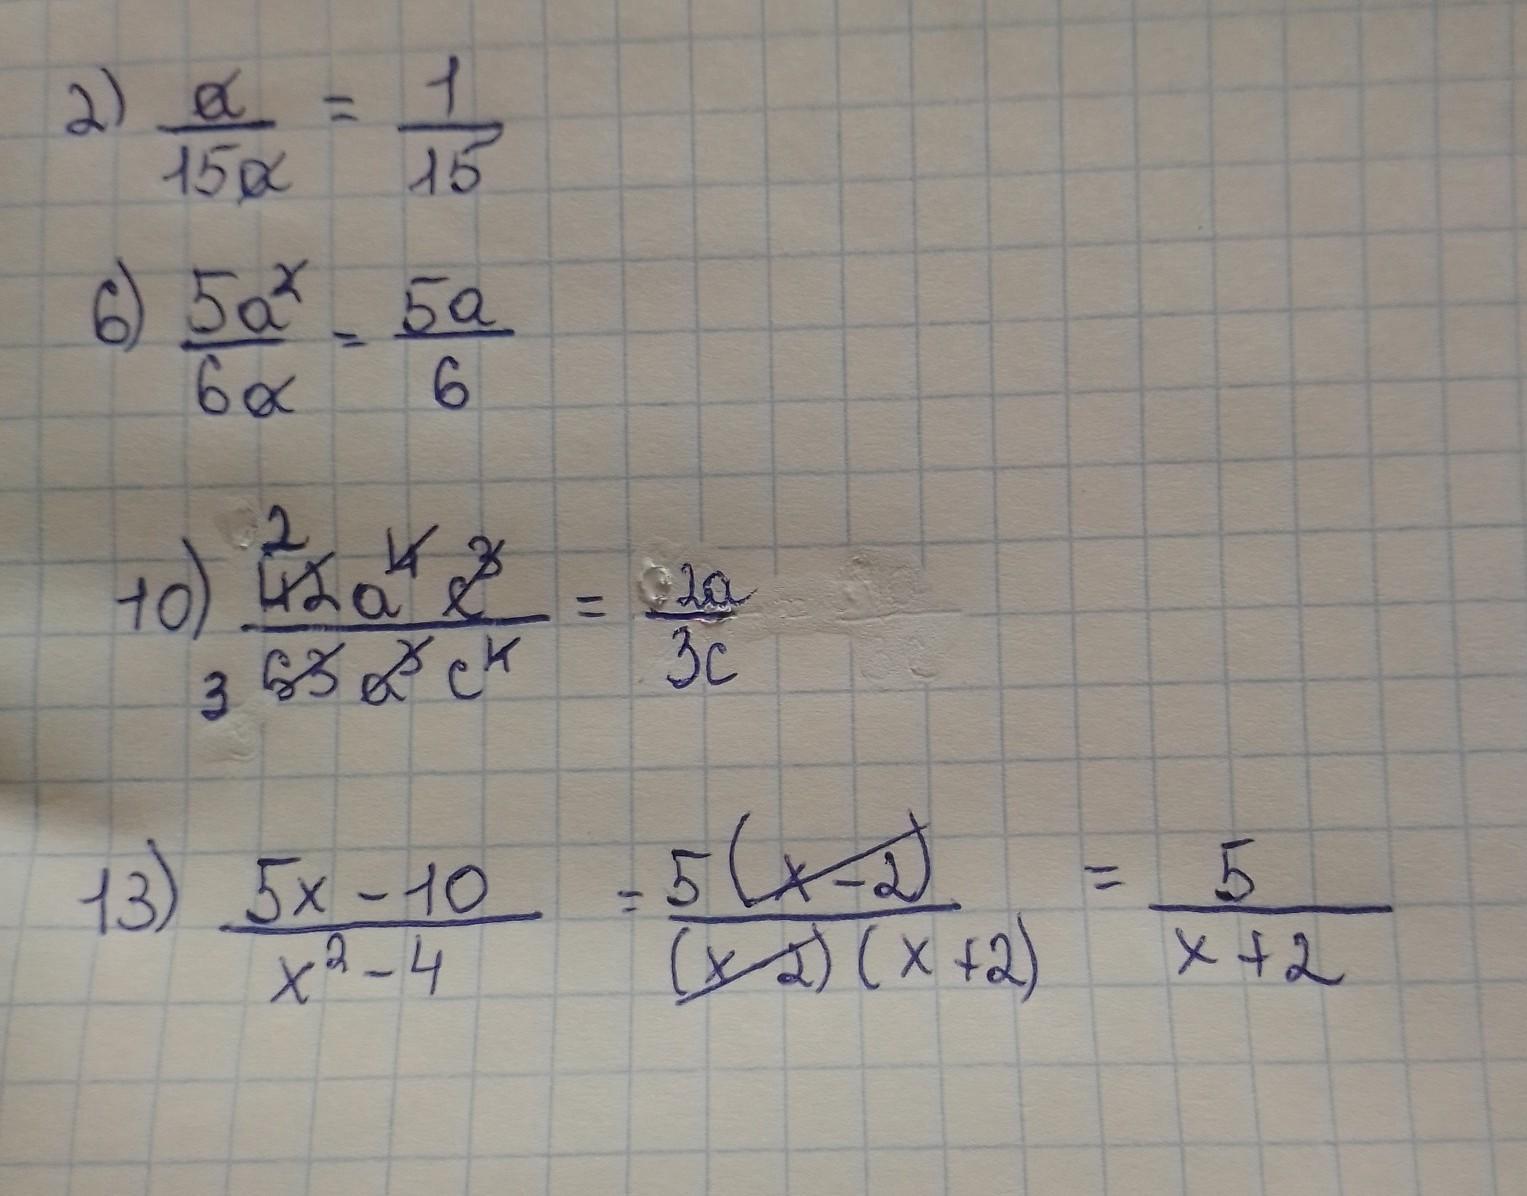 2) a/15a = 1/15
6) 5a²/6a = 5a/6
10) 42a⁴c³/63a³c⁴ = 2a/3c
2
3
13) 5x-10/x²-4 = 5(x-2)/(x-2)(x+2) = 5/x+2